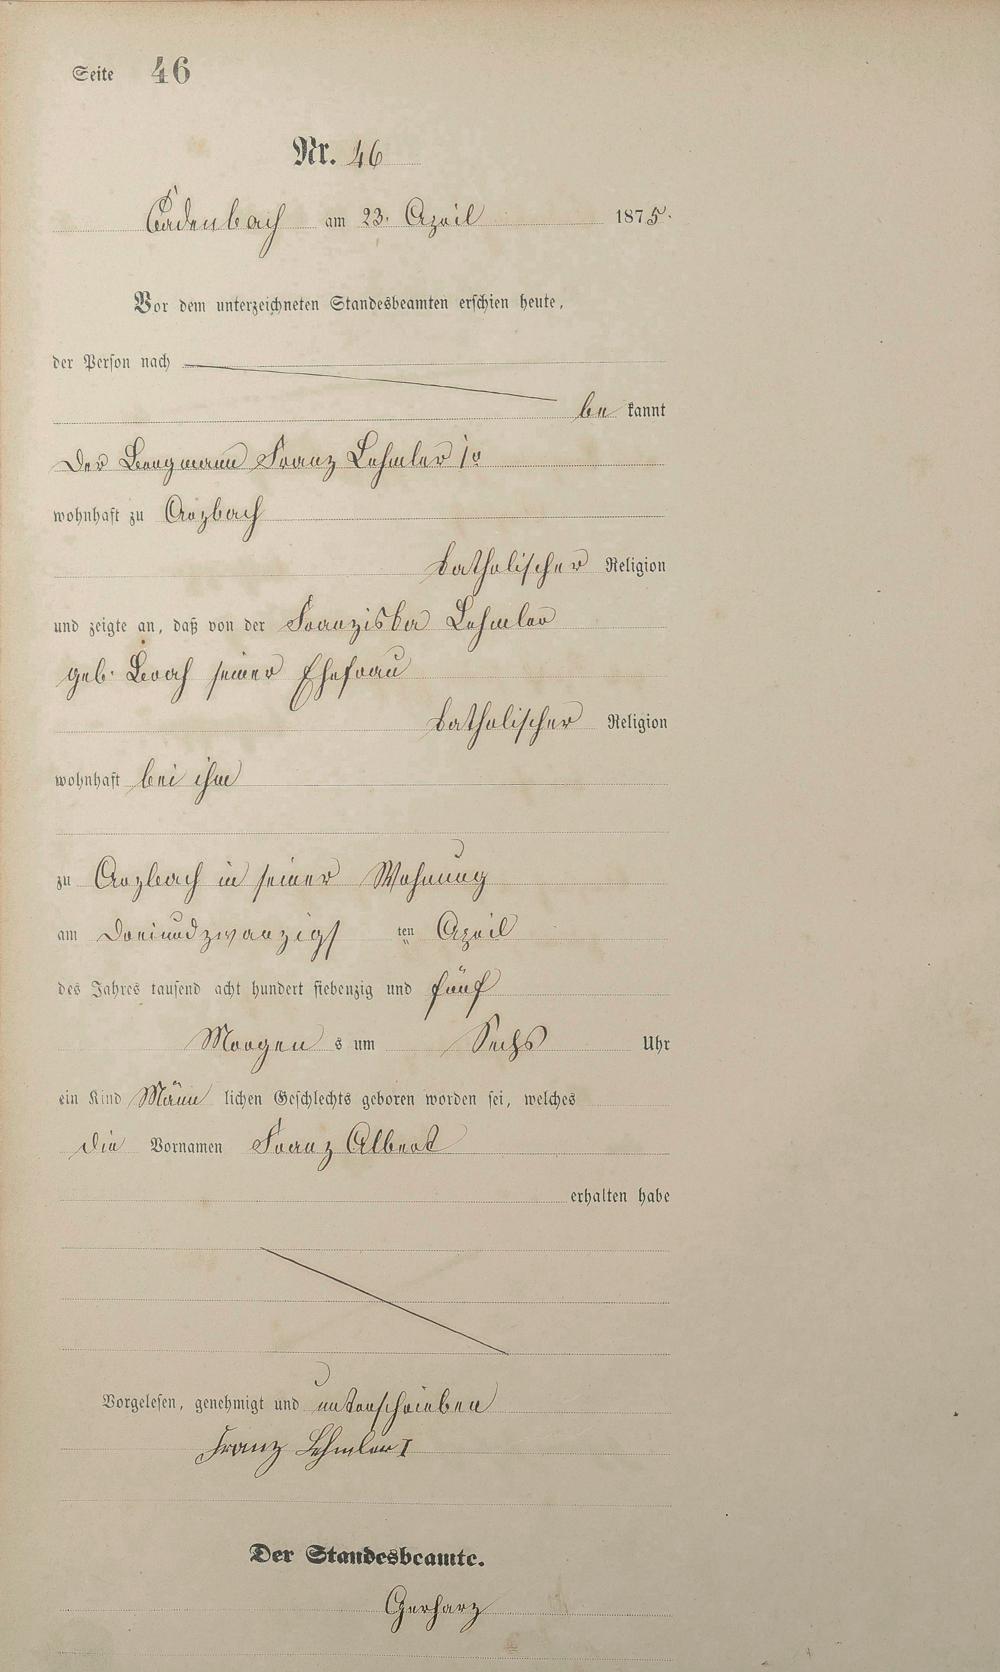 Seite 46
Nr. 46
Cadenbach am 23. April 1875.
Vor dem unterzeichneten Standesbeamten erschien heute,
der Person nach
be kannt
Der Bergmann Franz Lehmler 1r
wohnhaft zu Arzbach
katholischer Religion
und zeigte an, daß von der Franziska Lehmler
geb. seiner Ehefrau
katholischer Religion
wohnhaft bei ihm
zu Arzbach in seiner Wohnung
am dreiundzwanzigs ten April
des Jahres tausend acht hundert siebenzig und fünf
Morgen s um Sechs Uhr
ein Kind Männ lichen Geschlechts geboren worden sei, welches
die Vornamen Franz Albert
erhalten habe
Vorgelesen, genehmigt und unterschrieben
Franz Lehmler I
Der Standesbeamte.
Gerharz